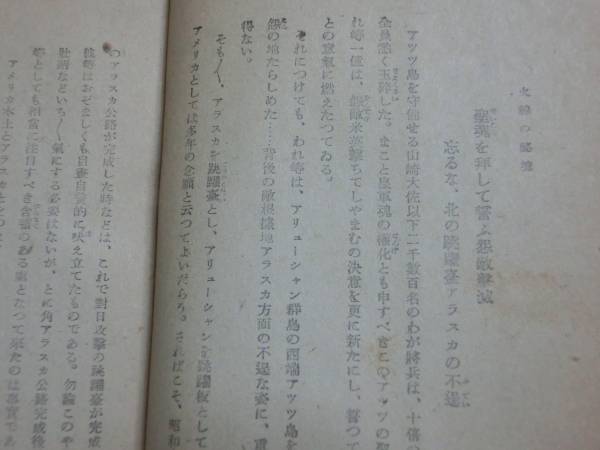 聖魂を拜して誓ふ怨敵擊滅
忘るな、北の跳躍臺アラスカの不逞
アッツ島を守備せる山崎大佐以下二千數百名のわが將兵は、十倍の
全員悉く玉碎した。まこと皇軍魂の權化とも申すべきこのアッツの聖
れ等一億は、米英擊ちてしやまむの決意を更に新たにし、誓つて
との意氣に燃えたつてゐる。
それにつけても、われ等は、アリューシャン群島の西端アッツ島を
の地たらしめた……背後の敵根據地アラスカ方面の不逞な姿に、重
得ない。
そも〳〵、アラスカを跳躍臺とし、アリューシャンを跳躍板として
アメリカとしては多年の念願と云つてよいだらう。さればこそ、昭和
アラスカ公路が完成した時などは、これで對日攻擊の跳躍臺が完成
彼等はおぞましくも自畫自讃的に吠え立てたものである。勿論このや
壯語などいち〳〵氣にする必要はないが、とに角アラスカ公路完成後
等としても相當に注目すべき含蓄のある事となつて來たのは事實であ
アメリカ本土とアラスカとを